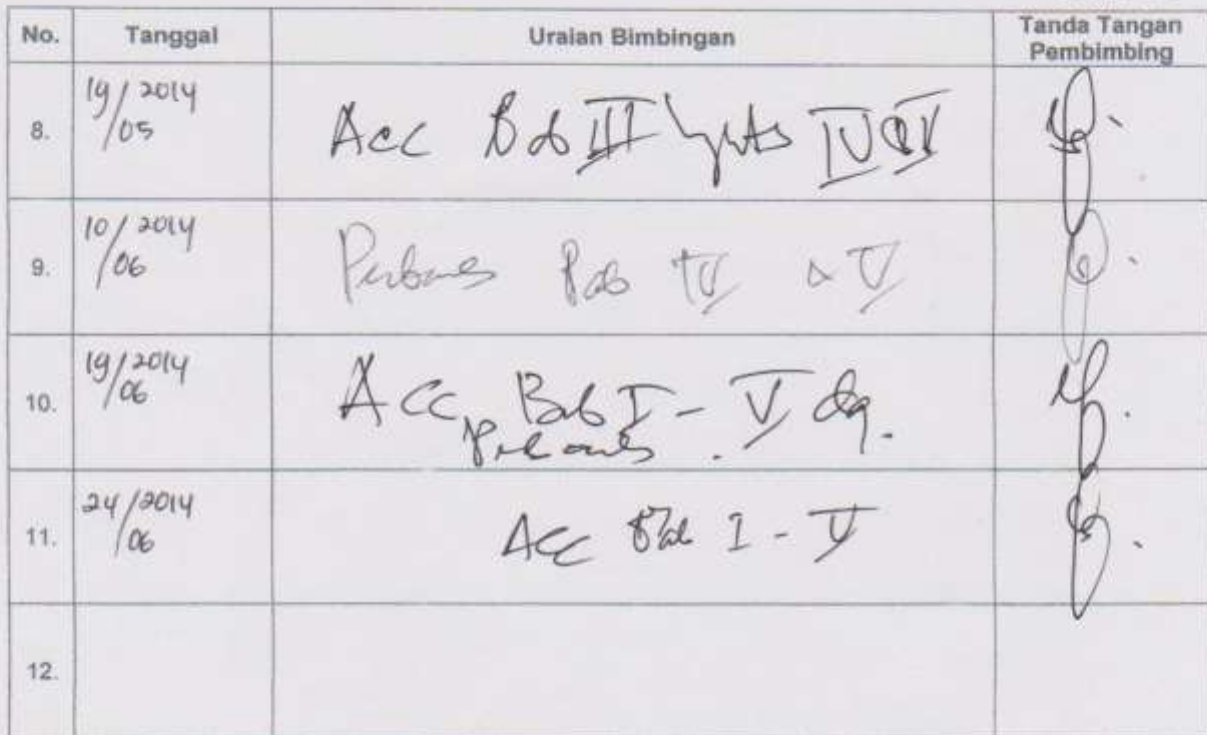 No. Tanggal Uraian Bimbingan Tanda Tangan
Pembimbing
8. 19/05 2014 Acc Bab III IV & V
9. 10/06 2014 Bab IV & V
10. 19/06 2014 Acc Bab I - V
11. 24/06 2014 Acc Bab I - V
12.